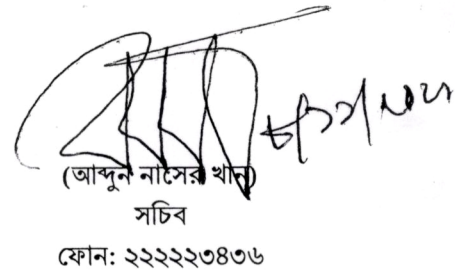 (আব্দুন নাসের খান)
সচিব
ফোন: ২২২২২৩৪৩৬